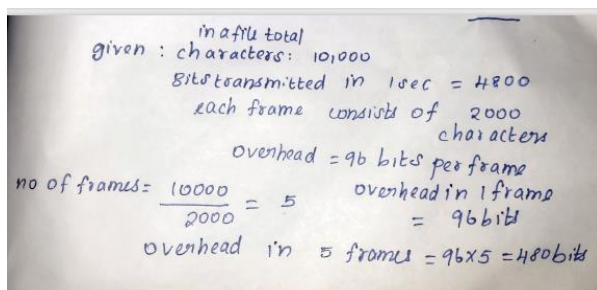 in a file total
given : characters: 10,000
Bits transmitted in 1sec = 4800
each frame consists of 2000
characters
overhead = 96 bits per frame
no of frames = 10000 / 2000 = 5
overhead in 1 frame
= 96 bits
overhead in 5 frames = 96x5 = 480 bits